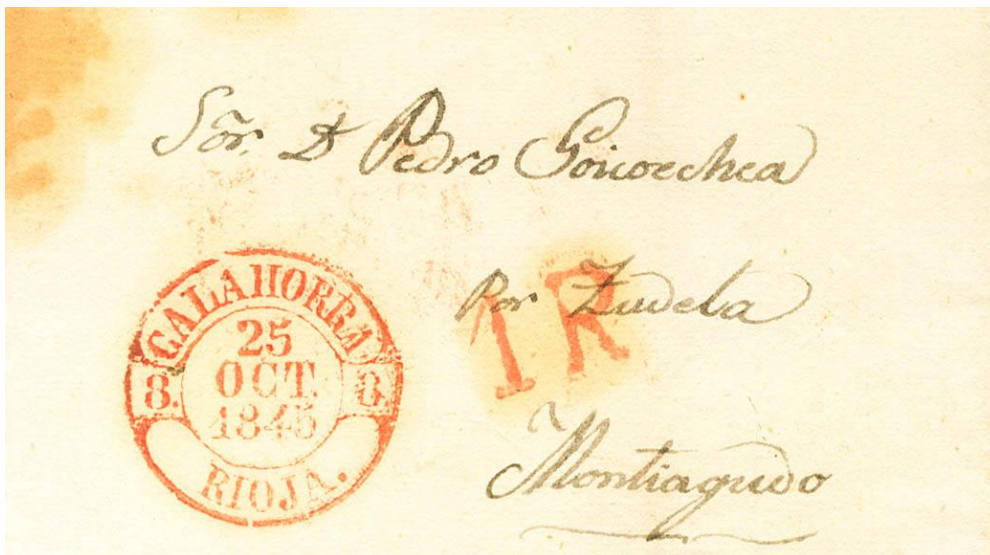 Sõr. D Pedro Goicoechea
Por Tudela
1R
Montiagudo
CALAHORRA
8. 25 8.
OCT.
1845
RIOJA.